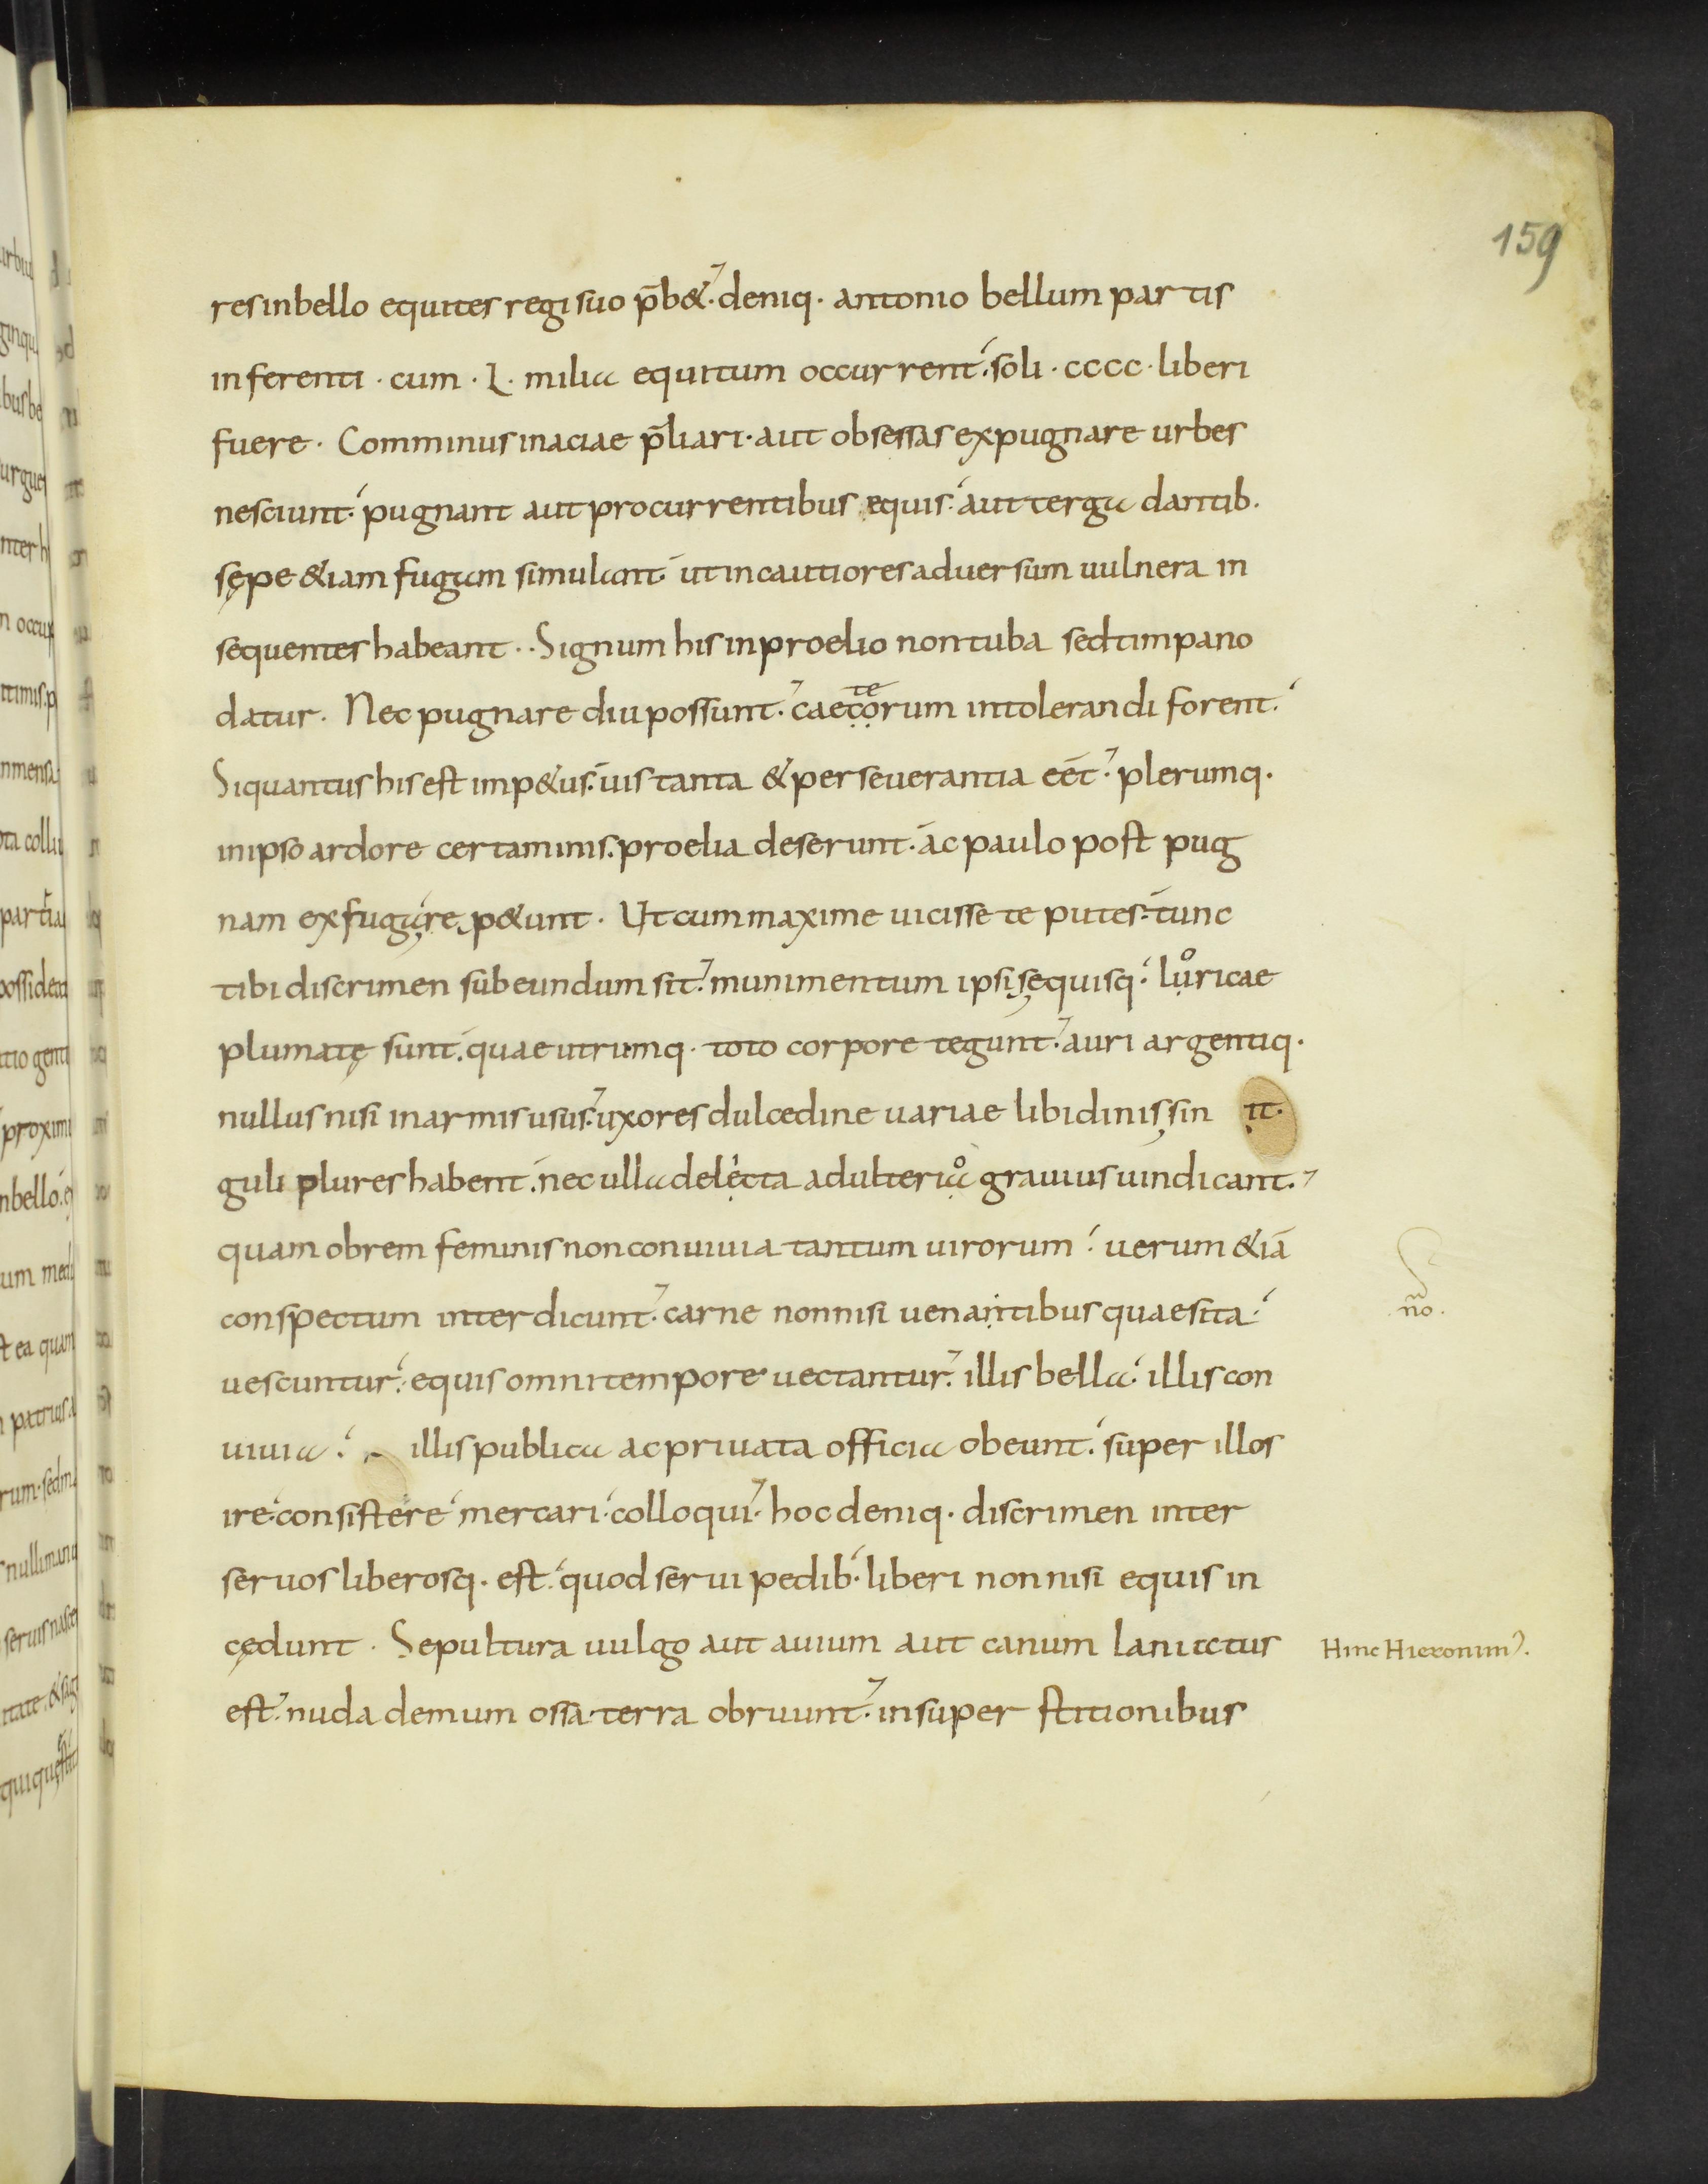 159
res in bello equites regi suo p̄b&. deniq. antonio bellum partis
inferenti . cum . L . milia equitum occurrent. soli . cccc . liberi
fuere . Comminus in aciae p̄liari . aut obsessas expugnare urbes
nesciunt. pugnant aut procurrentibus equis. aut terga dantib.
sępe &iam fugam simulant. ut incautiores aduersum uulnera in
sequentes habeant . . Signum his in proelio non tuba sed timpano
datur . Nec pugnare diu possunt. caetorum intolerandi forent.
te
Si quantus his est imp&us. uis tanta & perseuerantia eēt. plerumq.
in ipso ardore certaminis. proelia deserunt. ac paulo post pug
nam ex fugare p&unt . Ut cum maxime uicisse te putes. tunc
tibi discrimen subeundum sit. munimentum ipsis equisq. luoricae
plumatę sunt. quae utrumq. toto corpore tegunt. auri argentiq.
nullus nisi in armis usus. uxores dulcedine uariae libidinis sin it.
guli plures habent. nec ulla delecta adulteriao grauius uindicant.
quam obrem feminis non conuiuia tantum uirorum. uerum &iā
conspectum interdicunt. carne non nisi uenantibus quaesita.
n̄o.
uescuntur. equis omni tempore uectantur. illis bella. illis con
uiuia. illis publica ac priuata officia obeunt. super illos
ire. consistere. mercari. colloqui. hoc deniq. discrimen inter
seruos liberosq. est. quod serui pedib. liberi non nisi equis in
cędunt . Sepultura uulgo aut auium aut canum laniatus
Hinc Hieronim᾽.
est. nuda demum ossa terra obruunt. in superstitionibus